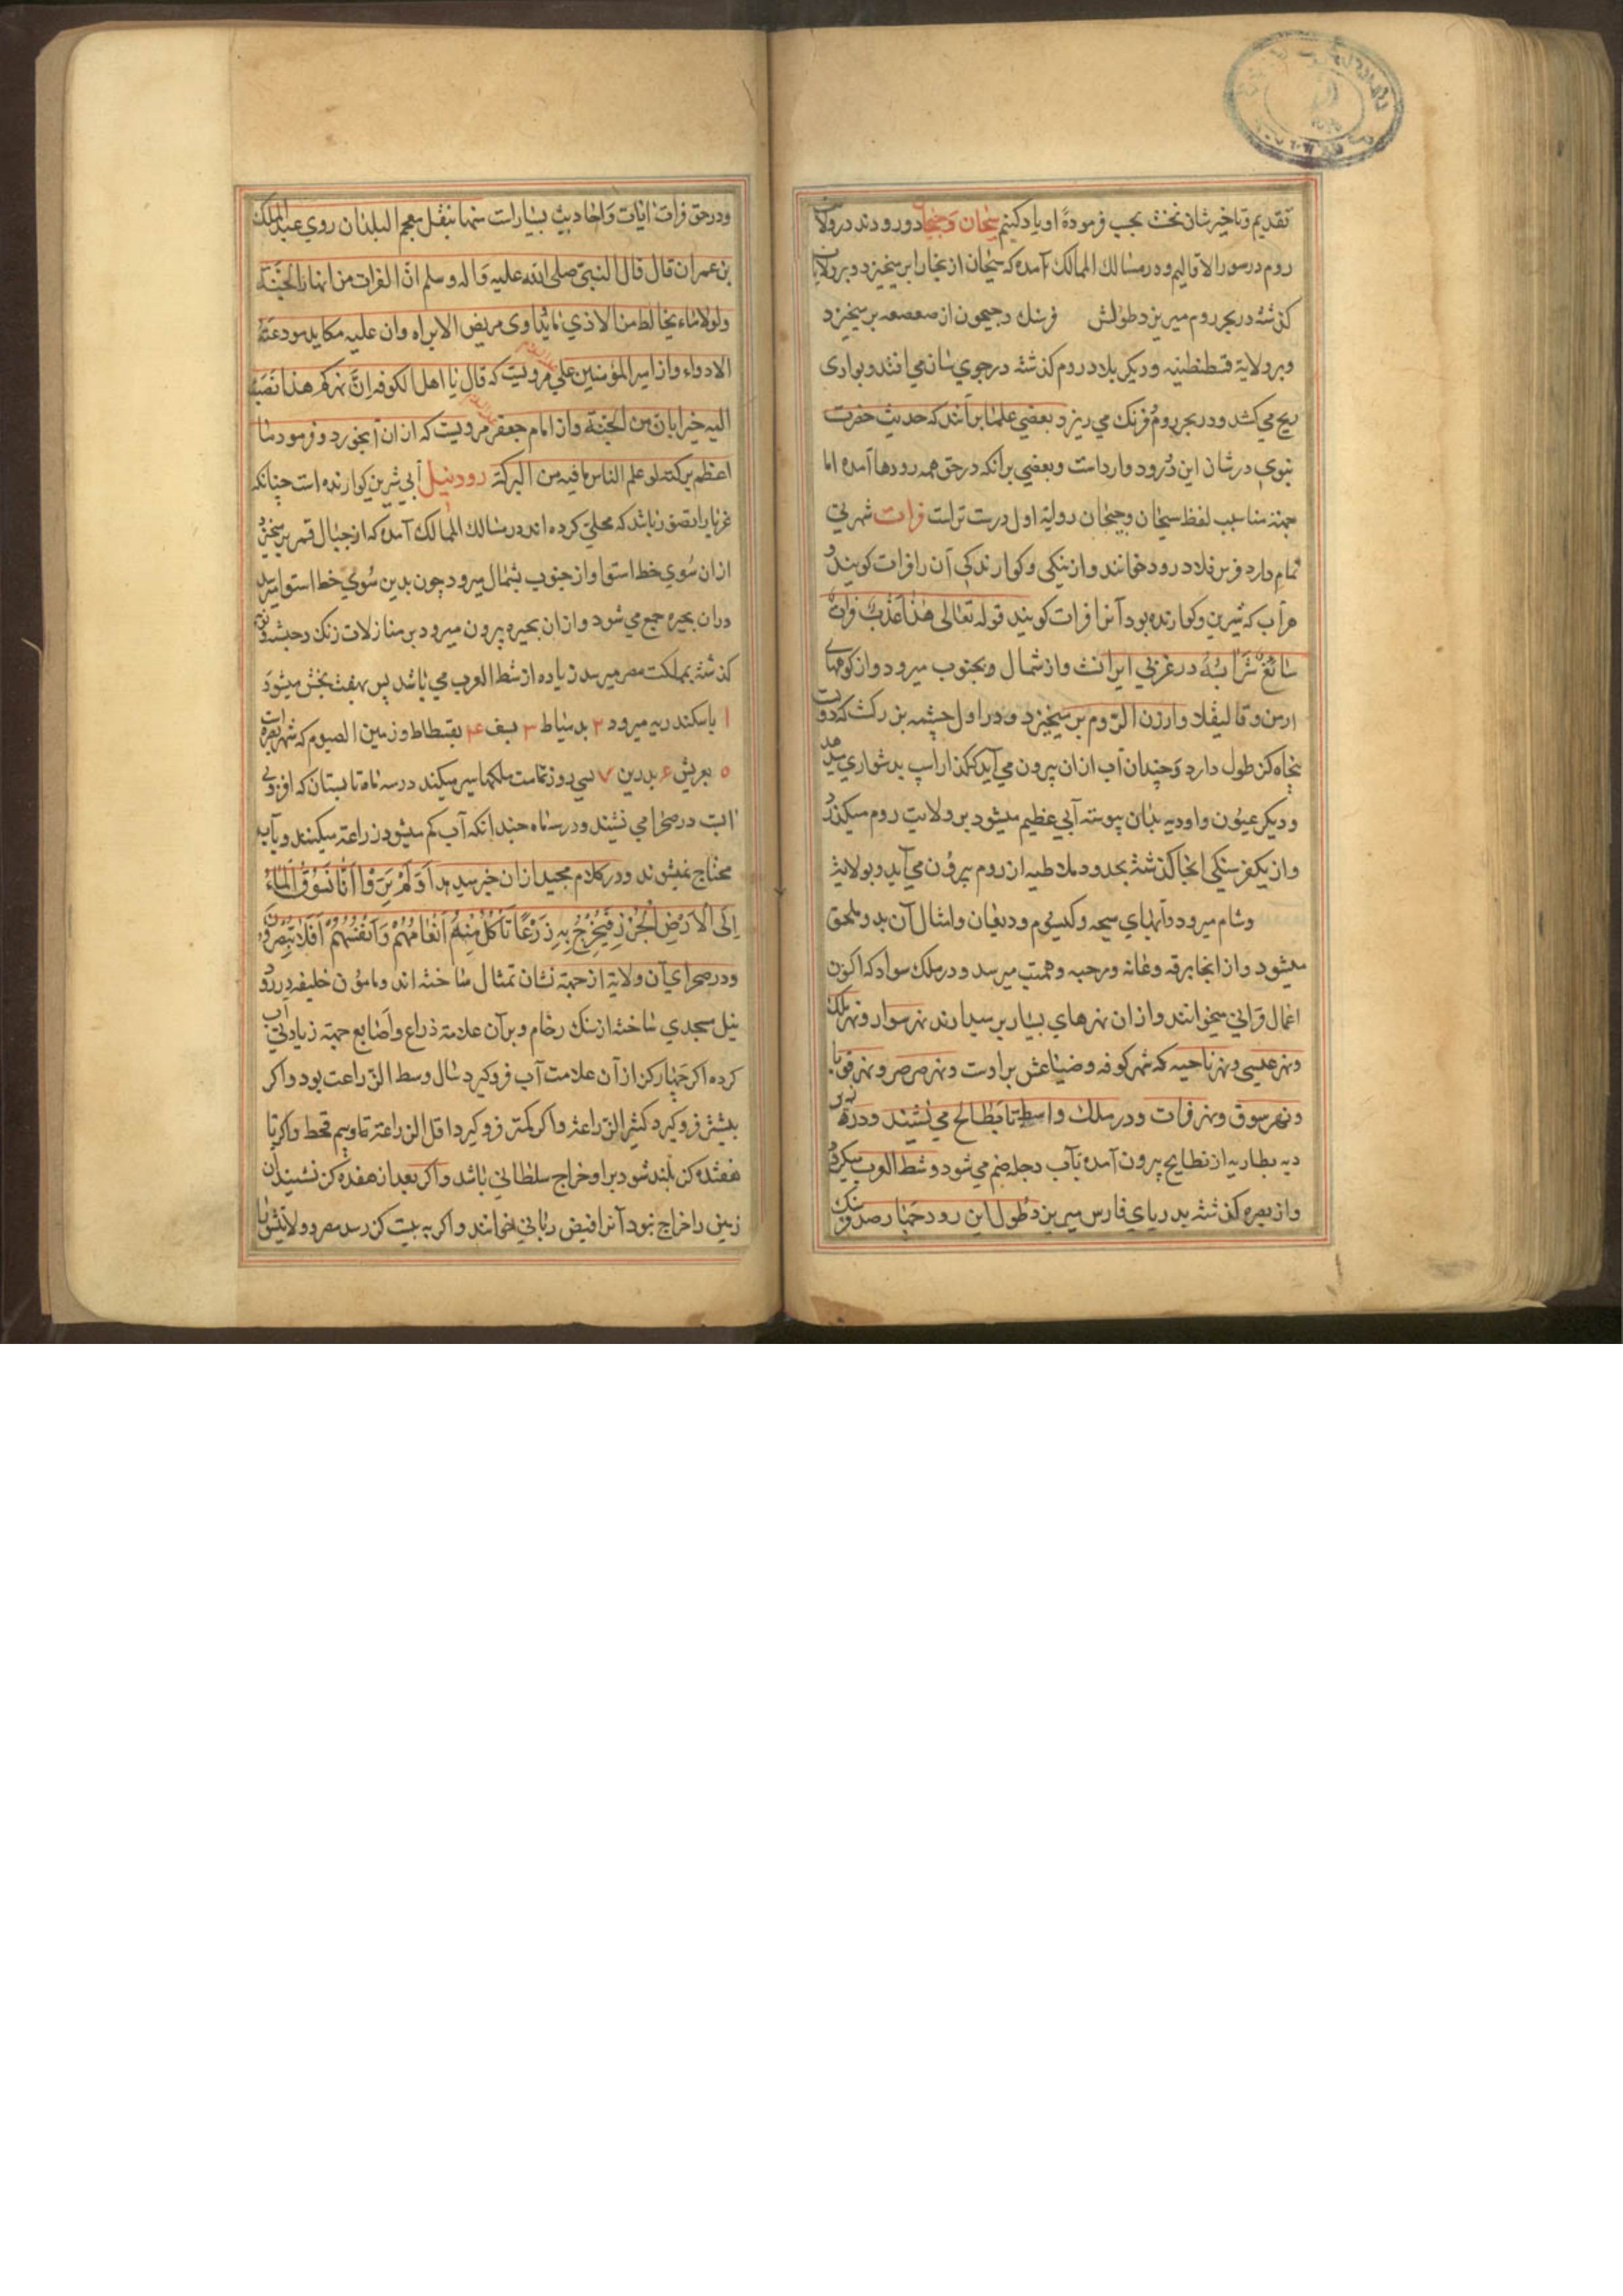 تقدیم وتاخیر شان نخست بجب فرموده او یاد کنیم سیحان وجیحان دو رودند در ولایت
روم در صور الاقالیم ودر مسالك الممالك آمده که سیحان از بر میخیزد وبر ولایات
کذشته در بحر روم میریزد طولش فرسنك وجیحون از صعصعه بر میخیزد
وبر ولایة قسطنطنیه ودیکر بلاد روم کذشته در جوي می افتد وبوادی
می کشد ودر بحر روم وفرنك می ریزد وبعضي علما برآنند که حدیث حضرت
نبوي در شان این دو رود وارد است وبعضي برانکه در حق همه رودها آمده اما
جهته مناسبت لفظ سیحان وجیحان روایة اول درست تر است فرات شهرتی
تمام دارد فرس فلاد رود خوانند واز نیکی وکوارندکی آن را فرات کویند و
هر آب که شیرین وکوارنده بود آنرا فرات کویند قوله تعالی هذا عذب فرات
سائغ شرابه در غربي ایرانست واز شمال وبجنوب میرود واز کوههای
ارمن وقالیقلا وارزن الروم بر میخیزد ودر اول چشمه بزرکست که دویست
پنجاه کز طول دارد وچندان آب ازان بیرون می آید که کذار اسپ بدشواري میدهد
ودیکر عیون واودیه بدان پیوسته آبي عظیم میشود بر ولایت روم میکذرد
واز یکفرسنکی انجا کذشته بحدود ملاطیه از روم بیرون می آید وبولایة
وشام میرود وآبهای سیحه وکیسوم ودیعان وامثال آن بدو ملحق
میشود واز انجا برقه وعانه ورحبه وهیت میرسد ودر ملك سواد که اکنون
اعمال فراتی میخوانند وازان نهرهای بسیار بر میدارند نهر سوار ونهر ملك
ونهر عیسي ونهر ناحیه که شهر کوفه وضیاعش براوست ونهر صرصر ونهر
ونهر سوق ونهر فرات ودر ملك واسط تا بطایح می نشیند ودر
دیه مطاریه از بطایح بیرون آمده بآب دجله ضم می شود وشط العرب میکردد
واز بصره کذشته بدریای فارس میریزد طول این رود چهار صد فرسنك
ودر حق فرات ایات واحادیث بسیار است منها بنقل معجم البلدان روي عبد الملك
بن عمران قال قال النبي صلی الله علیه واله وسلم ان الفرات من انهار الجنة
ولولا ماء یخالط من الاذي ما یتداوی مریض الا براه وان علیه
الادواء واز امیر المؤمنین علي علیه السلام مرویست که قال یا اهل الکوفه ان نهرکم هذا
الیه میزابان من الجنة واز امام جعفر علیه السلام مرویست که ازان آب خورد وفرمود ما
اعظم برکته لو علم الناس ما فیه من البرکة رود نیل آبي شیرین کوارنده است چنانکه
غربا را تصور باشد که محلي کرده اند در مسالك الممالك آمده که از جبال قمر بر میخیزد
ازان سوي خط استوا واز جنوب بشمال میرود چون بدین سوي خط استوا میرسد
دران بحیره جمع می شود وازان بحیره بیرون میرود بر منازلات زنك وحبشه ونوبه
کذشته بمملکت مصر میرسد زیاده از شط العرب می باشد پس بهفت بخش میشود
۱ باسکندریه میرود ۲ بدمیاط ۳ ۴ بفسطاط وزمین الصیوم که شهر است
۵ بعریش ۶ ۷ تمامت ملکها سیر میکند در سه ماه تابستان که افزونی
آبست در صحرا می نشیند ودر سه ماه چندانکه آب کم میشود زراعة میکنند وبآب
محتاج نمیشوند ودر کلام مجید ازان خبر میدهد اولم یروا انا نسوق الماء
الی الارض الجرز فنخرج به زرعا تأکل منه انعامهم وانفسهم افلا یبصرون
ودر صحرای آن ولایة از جهة نشان تمثال ساخته اند ومامون خلیفه در رود
نیل مسجدي ساخته از سنك رخام وبرآن علامة ذراع واصابع جهة زیادتی آب
کرده اکر چهار کز ازآن علامت آب فرو کیرد سال وسط الزراعت بود واکر
بیشتر فرو کیرد کثیر الزراعة واکر کمتر فرو کیرد اقل الزراعة تا وبیم قحط واکر تا
هفده کز بلند شود بر او خراج سلطانی باشد واکر بعد از هفده کز نشیند آن
زمین را خراج نبود آنرا فیض ربانی خوانند واکر به بیست کز رسد مصر وولایتش را